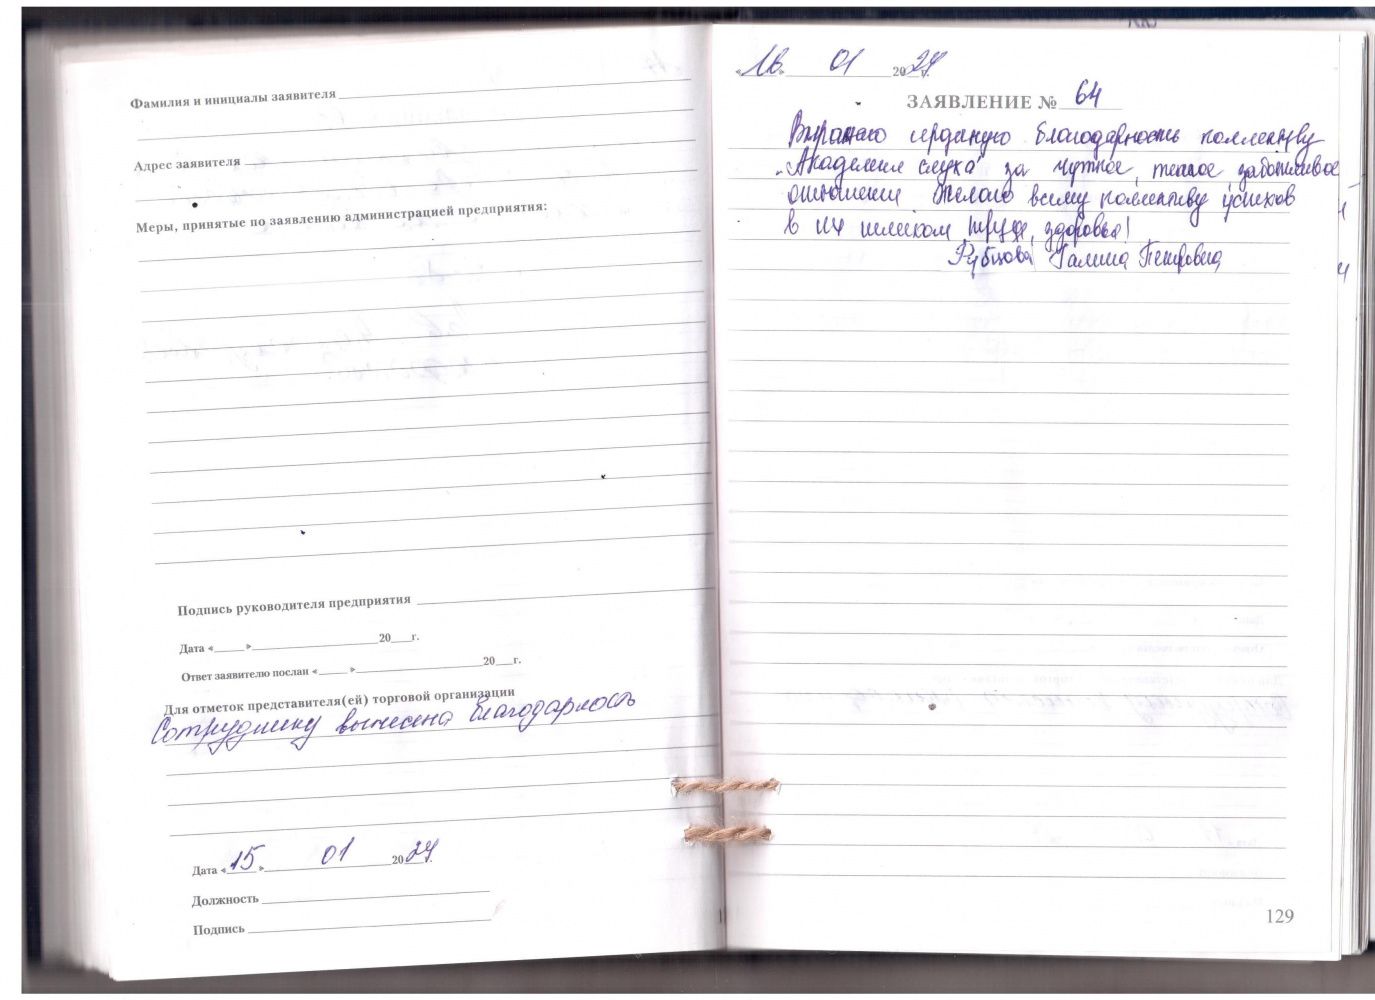 Фамилия и инициалы заявителя
Адрес заявителя
Меры, принятые по заявлению администрацией предприятия:
Подпись руководителя предприятия
Дата « » 20 г.
Ответ заявителю послан « » 20 г.
Для отметок представителя(ей) торговой организации
Сотруднику вынесена благодарность
Дата «15» 01 2024 г.
Должность
Подпись
«16» 01 2024 г.
ЗАЯВЛЕНИЕ № 64
Выражаю сердечную благодарность коллективу
„Академия слуха" за чуткое, теплое, заботливое
отношение Желаю всему коллективу успехов
в их нелегком труде, здоровья!
Рубцова Галина Петровна
129